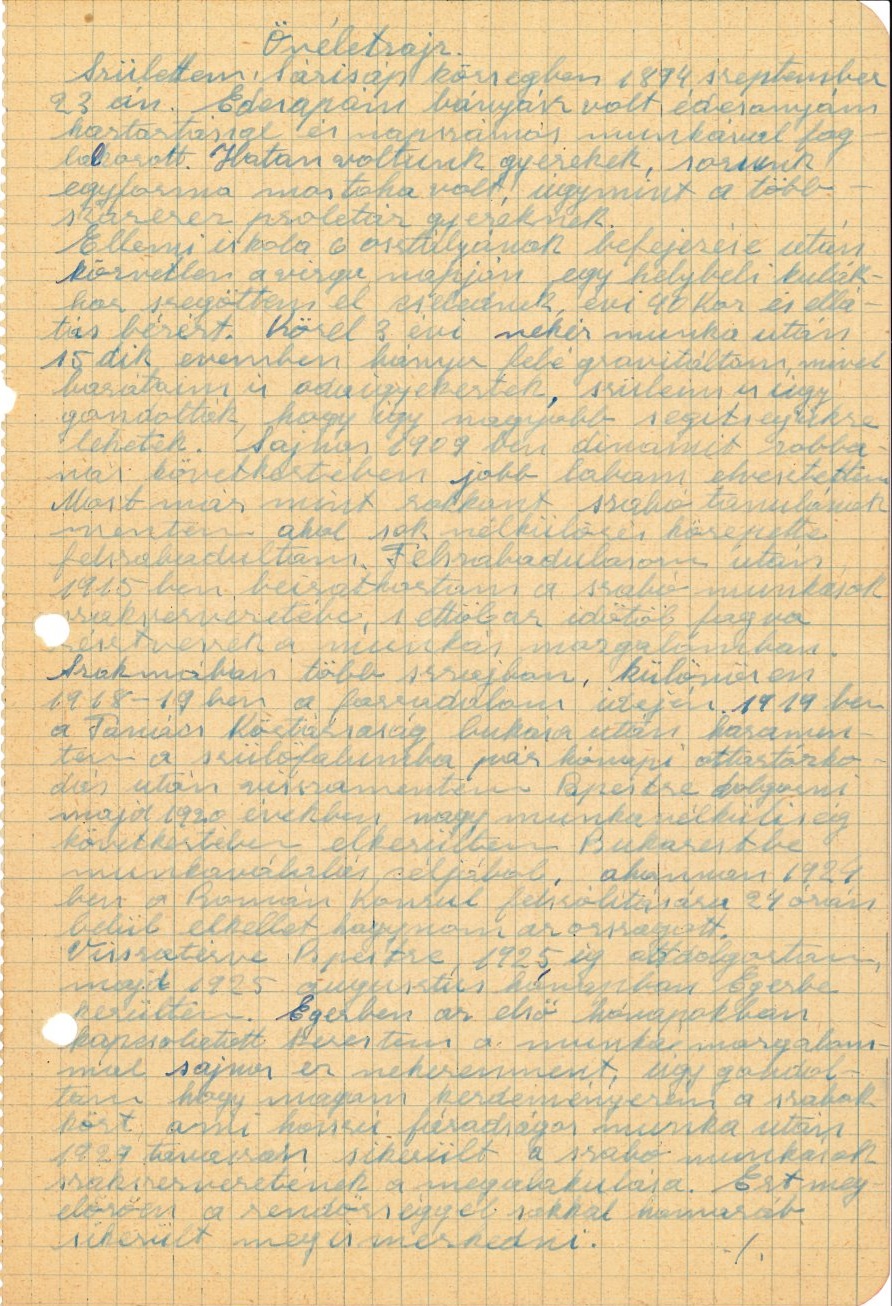 Önéletrajz.
Születtem, Sárisáp községben 1894 szeptember
23 án. Édesapám bányász volt édesanyám
háztartással és napszámos munkával fog-
lalkozott. Hatan voltunk gyerekek, sorsunk
egyforma mostoha volt, úgymint a több-
százezer proletár gyereknek
Ellemi iskola 6 osztályának befejezése után
közvetlen a vizsga napján egy helybeli kulák-
hoz szegöttem el cselédnek, évi 40 Kor és ellá-
tás bérért. Közel 3 évi nehéz munka után
15 dik évemben bánya felé gravitáltam, mivel
barátaim is odaigyekeztek, szüleim is úgy
gondolták, hogy így nagyobb segítségükre
lehetek. Sajnos 1909 ben dinamit robba-
nás következtében jobb lábam elvesztettem
Most már mint rokkant szabó tanulónak
mentem ahol sok nélkülözés közepette
felszabadultam. Felszabadulásom után
1915 ben beiratkoztam a szabó munkások
szakszervezetébe, s ettöl az idötöl fogva
résztveszek a munkás mozgalomban.
Szakmában több sztrájban, különösen
1918-19 ben a forradalom idején. 1919 ben
a Tanács Köztársaság bukása után hazamen-
tem a szülőfalumba pár hónapi otttartózko-
dás után visszamentem Bpestre dolgozni
majd 1920 években nagy munkanélküliség
következtében elkerültem Bukarestbe
munkavállalás céljából, ahonnan 1924
ben a Román Konzul felszólítására 24 órán
belül elkellet hagynom az országott.
Visszatérve Bpestre 1925 ig ott dolgoztam,
majd 1925 augusztus hónapban Egerbe
kerültem. Egerben az első hónapokban
kapcsolatott kerestem a munkás mozgalom-
mal sajnos ez nehezen ment, úgy gondol-
tam hogy magam kezdeményezem a szabók
közt ami hosszú fáradságos munka után
1927 tavaszán sikerült a szabó munkások
szakszervezetének a megalakulása. Ezt meg-
előzően a rendörséggel sokkal hamaráb
sikerült megismerkedni. ./.